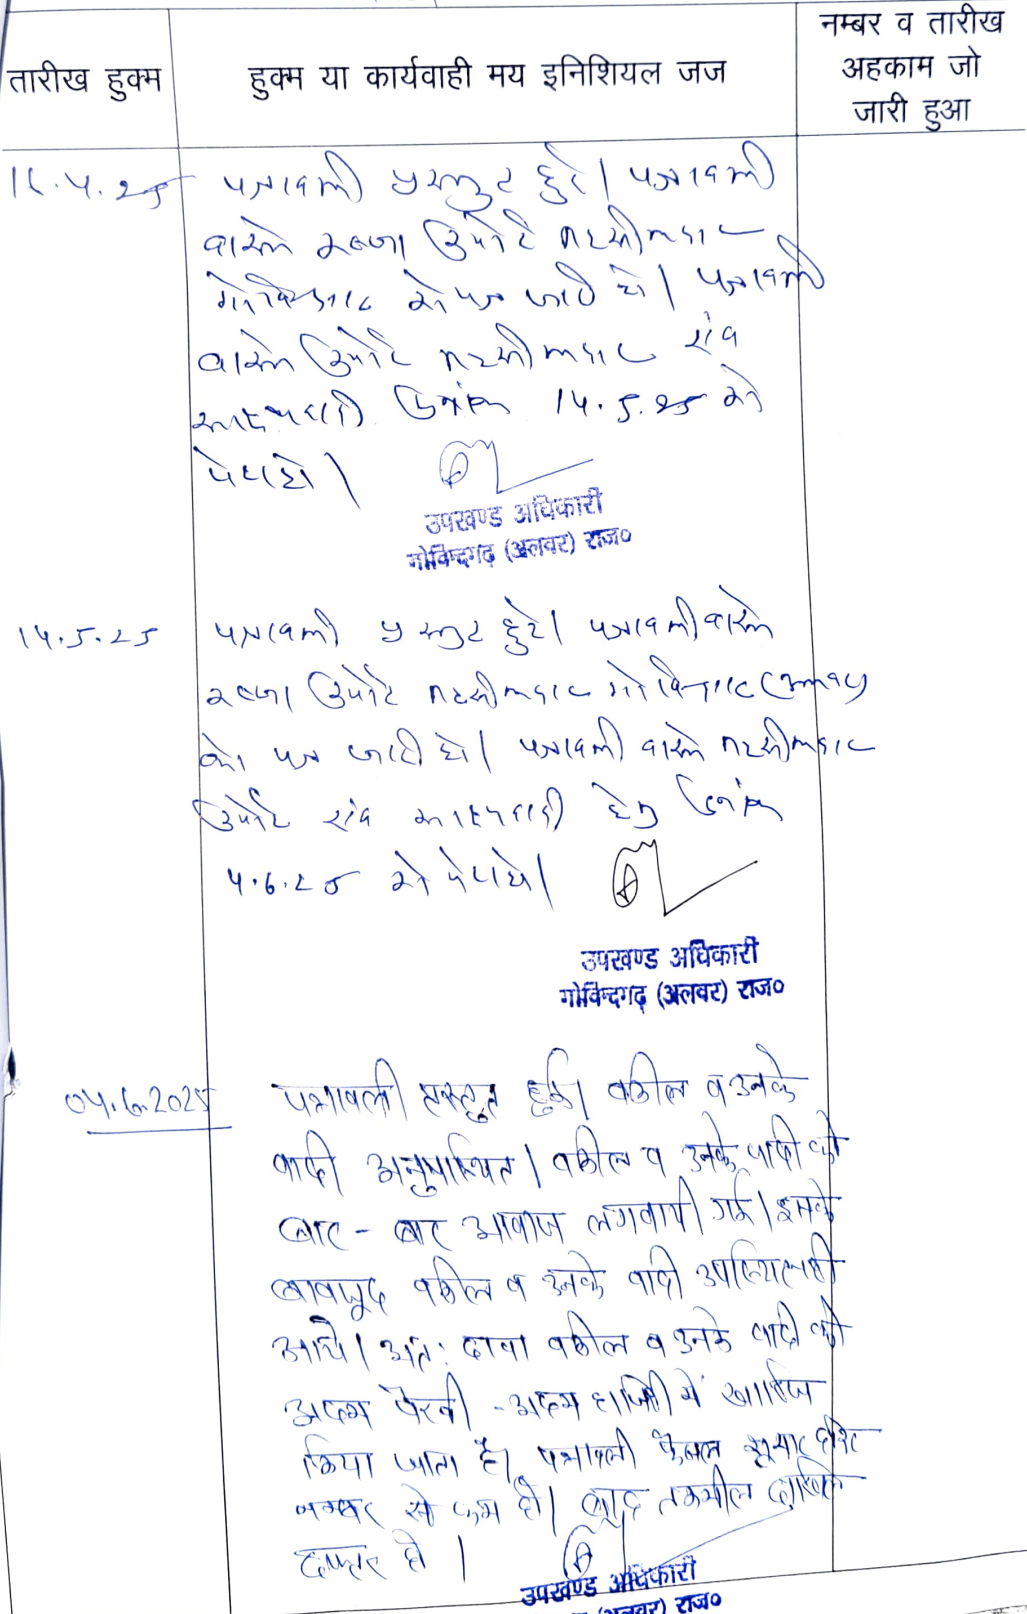 तारीख हुक्म
हुक्म या कार्यवाही मय इनिशियल जज
नम्बर व तारीख
अहकाम जो
जारी हुआ
पत्रावली प्रस्तुत हुई। पत्रावली
वास्ते रिपोर्ट तहसीलदार
गोविन्दगढ़ को पत्र जारी हो। पत्रावली
वास्ते रिपोर्ट तहसीलदार एंव
दिनांक 14.5.25 को
पेश हो।
उपखण्ड अधिकारी
गोविन्दगढ़ (अलवर) राज०
14.5.25
पत्रावली प्रस्तुत हुई। पत्रावली वास्ते
रिपोर्ट तहसीलदार गोविन्दगढ़ (अलवर)
को पत्र जारी हो। पत्रावली वास्ते तहसीलदार
रिपोर्ट एंव हेतु दिनांक
4.6.25 को पेश हो।
उपखण्ड अधिकारी
गोविन्दगढ़ (अलवर) राज०
04.6.2025
पत्रावली प्रस्तुत हुई। वकील व उनके
वादी अनुपस्थित। वकील व उनके वादी को
बार-बार आवाज लगवायी गई। इसके
बावजूद वकील व उनके वादी उपस्थित नही
आये। अत: दावा वकील व उनके वादी की
अदम पैरवी-अदम हाजिरी में खारिज
किया जाता है। पत्रावली फैसल शुमार होकर
नम्बर से कम हो। बाद तकमील दाखिल
दफ्तर हो।
उपखण्ड अधिकारी
(अलवर) राज०